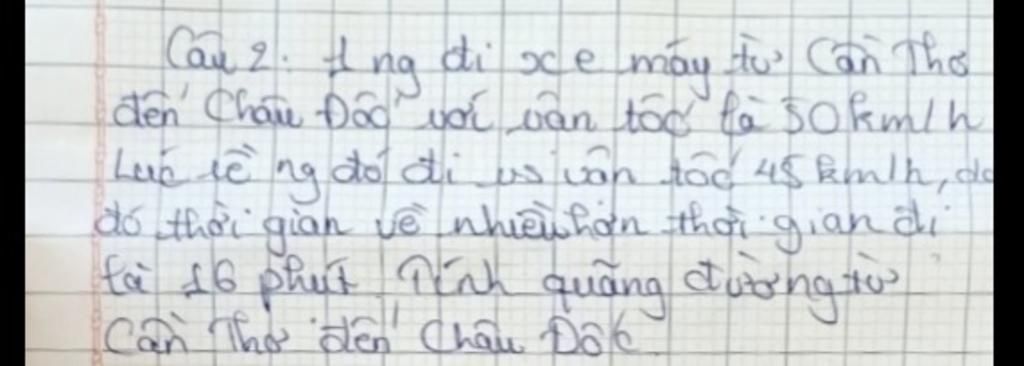 Câu 2. 1 ng đi xe máy từ Cần Thơ
đến Châu Đốc với vân tốc là 50km/h
Lúc về ng đó đi vs vân tốc 45 km/h, do
đó thời gian về nhiều hơn thời gian đi
là 16 phút Tính quãng đường từ
Cần Thơ đến Châu Đốc